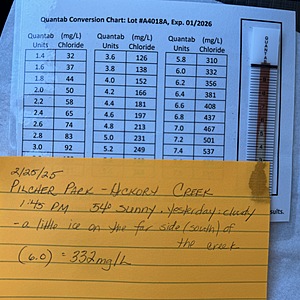 Quantab Conversion Chart: Lot #A4018A, Exp. 01/2026
Quantab (mg/L) Quantab (mg/L) Quantab (mg/L)
Units Chloride Units Chloride Units Chloride
1.4 32 3.6 126 5.8 310
1.6 37 3.8 138 6.0 332
1.8 44 4.0 152 6.2 356
2.0 50 4.2 166 6.4 381
2.2 58 4.4 181 6.6 408
2.4 65 4.6 197 6.8 437
2.6 74 4.8 213 7.0 467
2.8 83 5.0 231 7.2 501
3.0 92 5.2 249 7.4 537
sults.
2/25/25
PILCHER PARK - HICKORY CREEK
1:45 PM 54° sunny, yesterday: cloudy
- a little ice on the far side (south) of
the creek
(6.0) = 332 mg/L